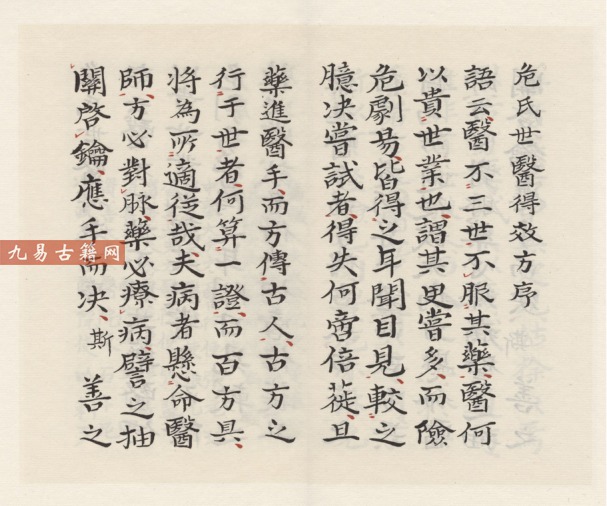 危氏世醫得效方序
語云醫不三世不服其藥醫何
以貴世業也謂其更嘗多而險
危劇易皆得之耳聞目見較之
臆决嘗試者得失何啻倍蓰且
藥進醫手而方傳古人古方之
行于世者何算一證而百方具
将為所適從哉夫病者懸命醫
師方必對脉藥必療病譬之抽
關啓鑰應手而决斯善之
九易古籍网